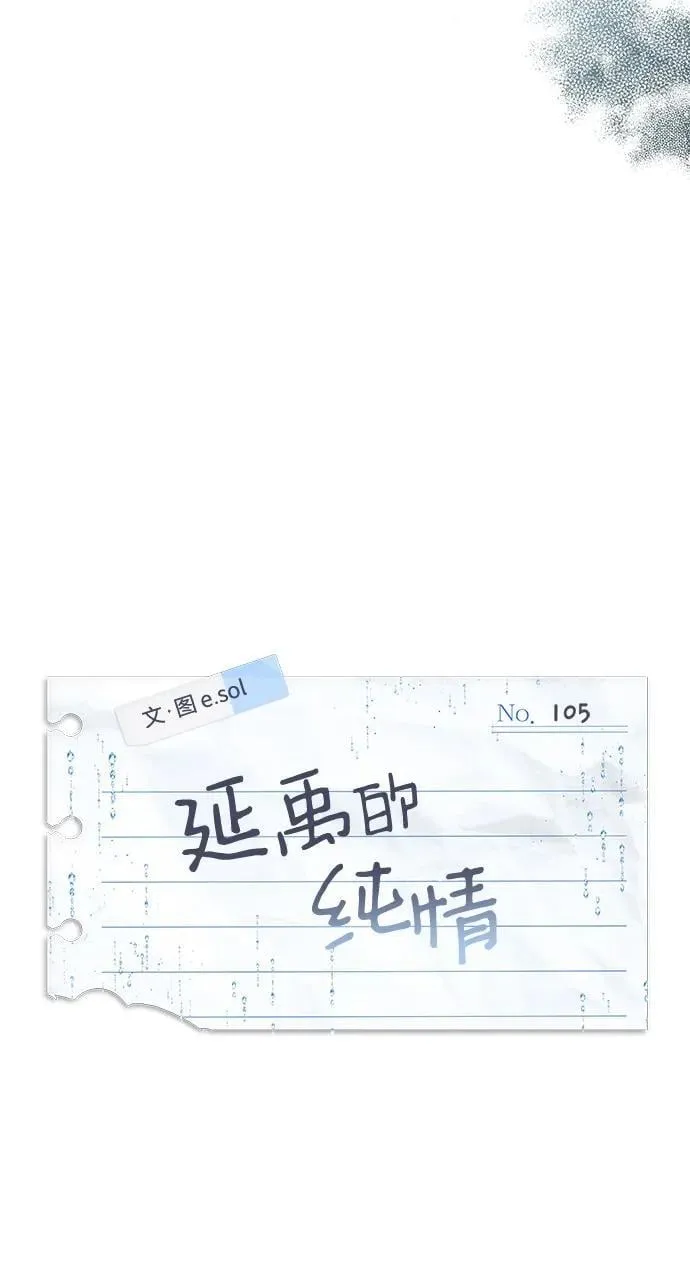 文·图 e.sol
No. 105
延禹的
纯情